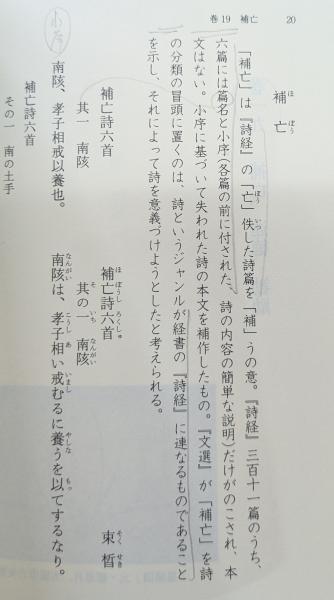 巻19 補亡 20
補亡
ほ ぼう
「補亡」は『詩経』の「亡」佚した詩篇を「補」うの意。『詩経』三百十一篇のうち、
ぼう いつ
六篇には篇名と小序（各篇の前に付された、詩の内容の簡単な説明）だけがのこされ、本
文はない。小序に基づいて失われた詩の本文を補作したもの。『文選』が「補亡」を詩
の分類の冒頭に置くのは、詩というジャンルが経書の『詩経』に連なるものであること
を示し、それによって詩を意義づけようとしたと考えられる。
補亡詩六首 補亡詩六首 束晳
ほ ぼうし ろくしゅ。 そく せき
其一 南陔 其の一 南陔
そ いち なんがい
小序
南陔、孝子相戒以養也。 南陔は、孝子相い戒むるに養うを以てするなり。
なんがい こうし あ いまし やしな もっ
補亡詩六首
その一 南の土手